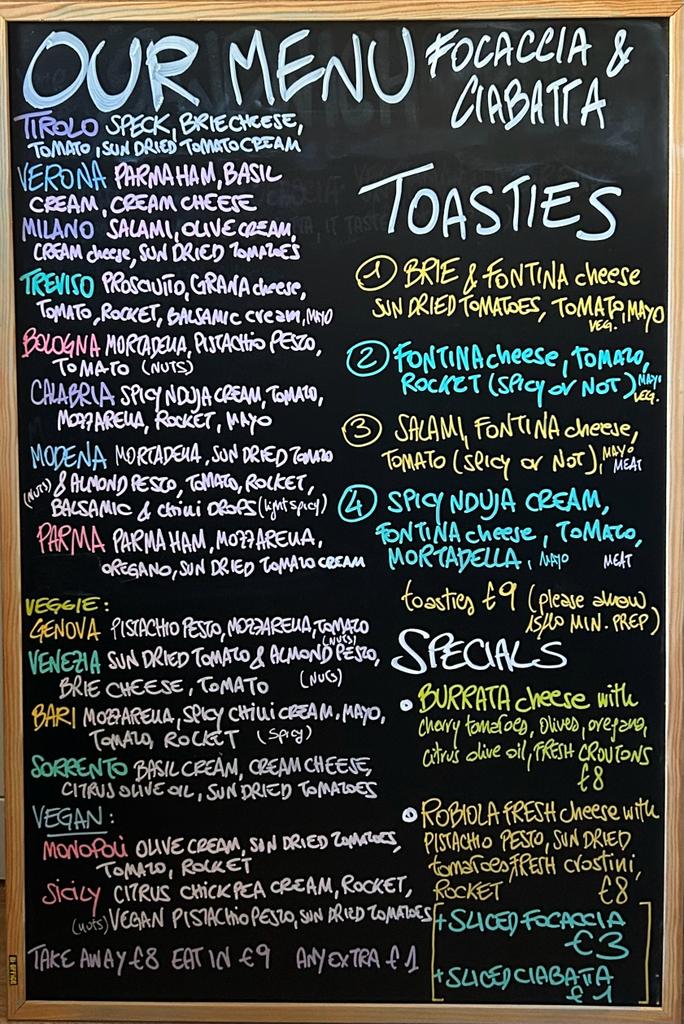 OUR MENU
FOCACCIA &
CIABATTA
TIROLO SPECK, BRIE CHEESE,
TOMATO, SUN DRIED TOMATO CREAM
VERONA PARMA HAM, BASIL
CREAM, CREAM CHEESE
MILANO SALAMI, OLIVE CREAM,
CREAM cheese, SUN DRIED TOMATOES
TREVISO PROSCIUTTO, GRANA cheese,
TOMATO, ROCKET, BALSAMIC cream, MAYO
BOLOGNA MORTADELLA, PISTACHIO PESTO,
TOMATO (NUTS)
CALABRIA SPICY NDUJA CREAM, TOMATO,
MOZZARELLA, ROCKET, MAYO
MODENA MORTADELLA, SUN DRIED TOMATO
(NUTS) & ALMOND PESTO, TOMATO, ROCKET,
BALSAMIC & CHILLI DROPS (light spicy)
PARMA PARMA HAM, MOZZARELLA,
OREGANO, SUN DRIED TOMATO CREAM
VEGGIE:
GENOVA PISTACHIO PESTO, MOZZARELLA, TOMATO
(NUTS)
VENEZIA SUN DRIED TOMATO & ALMOND PESTO,
BRIE CHEESE, TOMATO (NUTS)
BARI MOZZARELLA, SPICY CHILLI CREAM, MAYO,
TOMATO, ROCKET (Spicy)
SORRENTO BASIL CREAM, CREAM CHEESE,
CITRUS OLIVE OIL, SUN DRIED TOMATOES
VEGAN:
MONOPOLI OLIVE CREAM, SUN DRIED TOMATOES,
TOMATO, ROCKET
SICILY CITRUS CHICKPEA CREAM, ROCKET,
(NUTS) VEGAN PISTACHIO PESTO, SUN DRIED TOMATOES
TAKE AWAY £8 EAT IN £9 ANY EXTRA £1
TOASTIES
1 BRIE & FONTINA cheese
SUN DRIED TOMATOES, TOMATO, MAYO
VEG.
2 FONTINA cheese, TOMATO,
ROCKET (SPICY or NOT) MAYO
VEG.
3 SALAMI, FONTINA cheese,
TOMATO (SPICY or NOT), MAYO
MEAT
4 SPICY NDUJA CREAM,
FONTINA cheese, TOMATO,
MORTADELLA, MAYO MEAT
toasties £9 (please allow
15/20 MIN. PREP)
SPECIALS
• BURRATA cheese with
cherry tomatoes, olives, oregano,
citrus olive oil, FRESH CROUTONS
£8
• ROBIOLA FRESH cheese with
PISTACHIO PESTO, SUN DRIED
tomatoes, FRESH crostini,
ROCKET £8
+ SLICED FOCACCIA
£3
+ SLICED CIABATTA
£1